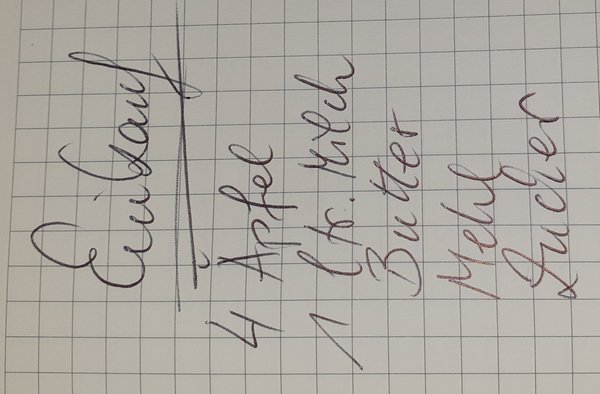 Einkauf
4 Äpfel
1 ltr. Milch
Butter
Mehl
Zucker